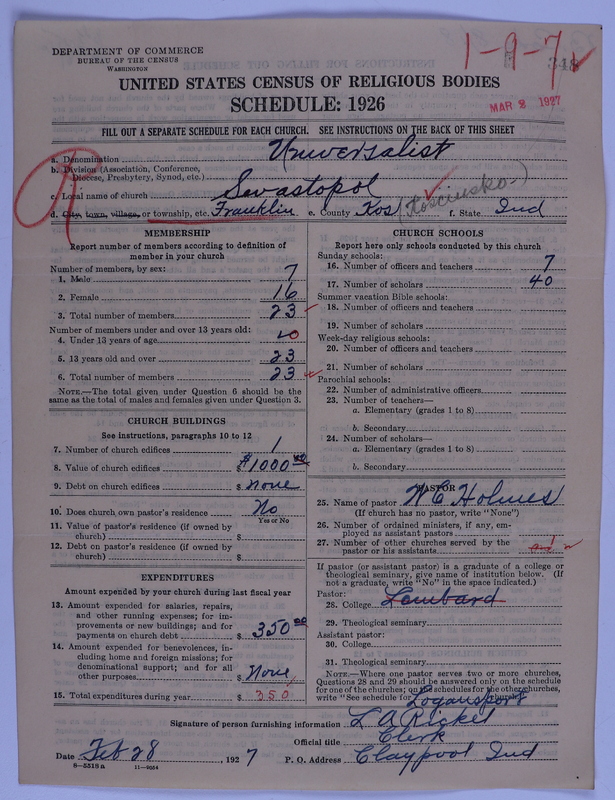 1-9-7
348
DEPARTMENT OF COMMERCE
BUREAU OF THE CENSUS
WASHINGTON
MAR 2 1927
UNITED STATES CENSUS OF RELIGIOUS BODIES
SCHEDULE: 1926
FILL OUT A SEPARATE SCHEDULE FOR EACH CHURCH. SEE INSTRUCTIONS ON THE BACK OF THIS SHEET
a. Denomination Universalist
b. Division (Association, Conference, Diocese, Presbytery, Synod, etc.)
c. Local name of church Sevastopol
R
d. City, town, village, or township, etc. Franklin e. County Kos (Kosciusko) f. State Ind
MEMBERSHIP
Report number of members according to definition of
member in your church
Number of members, by sex:
1. Male 7
2. Female 16
3. Total number of members 23
Number of members under and over 13 years old:
4. Under 13 years of age 0
5. 13 years old and over 23
6. Total number of members 23
NOTE.—The total given under Question 6 should be
same as the total of males and females given under Question 3.
CHURCH BUILDINGS
See instructions, paragraphs 10 to 12
7. Number of church edifices 1
8. Value of church edifices $ $1000 00
9. Debt on church edifices $ none
10. Does church own pastor's residence No
Yes or No
11. Value of pastor's residence (if owned by
church) $
12. Debt on pastor's residence (if owned by
church) $
EXPENDITURES
Amount expended by your church during last fiscal year
13. Amount expended for salaries, repairs,
and other running expenses; for im-
provements or new buildings; and for
payments on church debt $ 350 00
14. Amount expended for benevolences, in-
cluding home and foreign missions; for
denominational support; and for all
other purposes $ None
15. Total expenditures during year $ 350
CHURCH SCHOOLS
Report here only schools conducted by this church
Sunday schools:
16. Number of officers and teachers 7
17. Number of scholars 40
Summer vacation Bible schools:
18. Number of officers and teachers
19. Number of scholars
Week-day religious schools:
20. Number of officers and teachers
21. Number of scholars
Parochial schools:
22. Number of administrative officers
23. Number of teachers—
a. Elementary (grades 1 to 8)
b. Secondary
24. Number of scholars—
a. Elementary (grades 1 to 8)
b. Secondary
PASTOR
25. Name of pastor W C Holmes
(If church has no pastor, write "None")
26. Number of ordained ministers, if any, em-
ployed as assistant pastors
27. Number of other churches served by the
pastor or his assistants
If pastor (or assistant pastor) is a graduate of a college or
theological seminary, give name of institution below. (If
not a graduate, write "No" in the space indicated.)
Pastor:
28. College Lombard
29. Theological seminary
Assistant pastor:
30. College
31. Theological seminary
NOTE.—Where one pastor serves two or more churches,
Questions 28 and 29 should be answered only on the schedule
for one of the churches; on the schedules for the other churches,
write "See schedule for Logansport church."
Signature of person furnishing information L A Rickel
Official title Clerk
Date Feb 28, 1927 P. O. Address Claypool Ind
8—5518a 11—9054